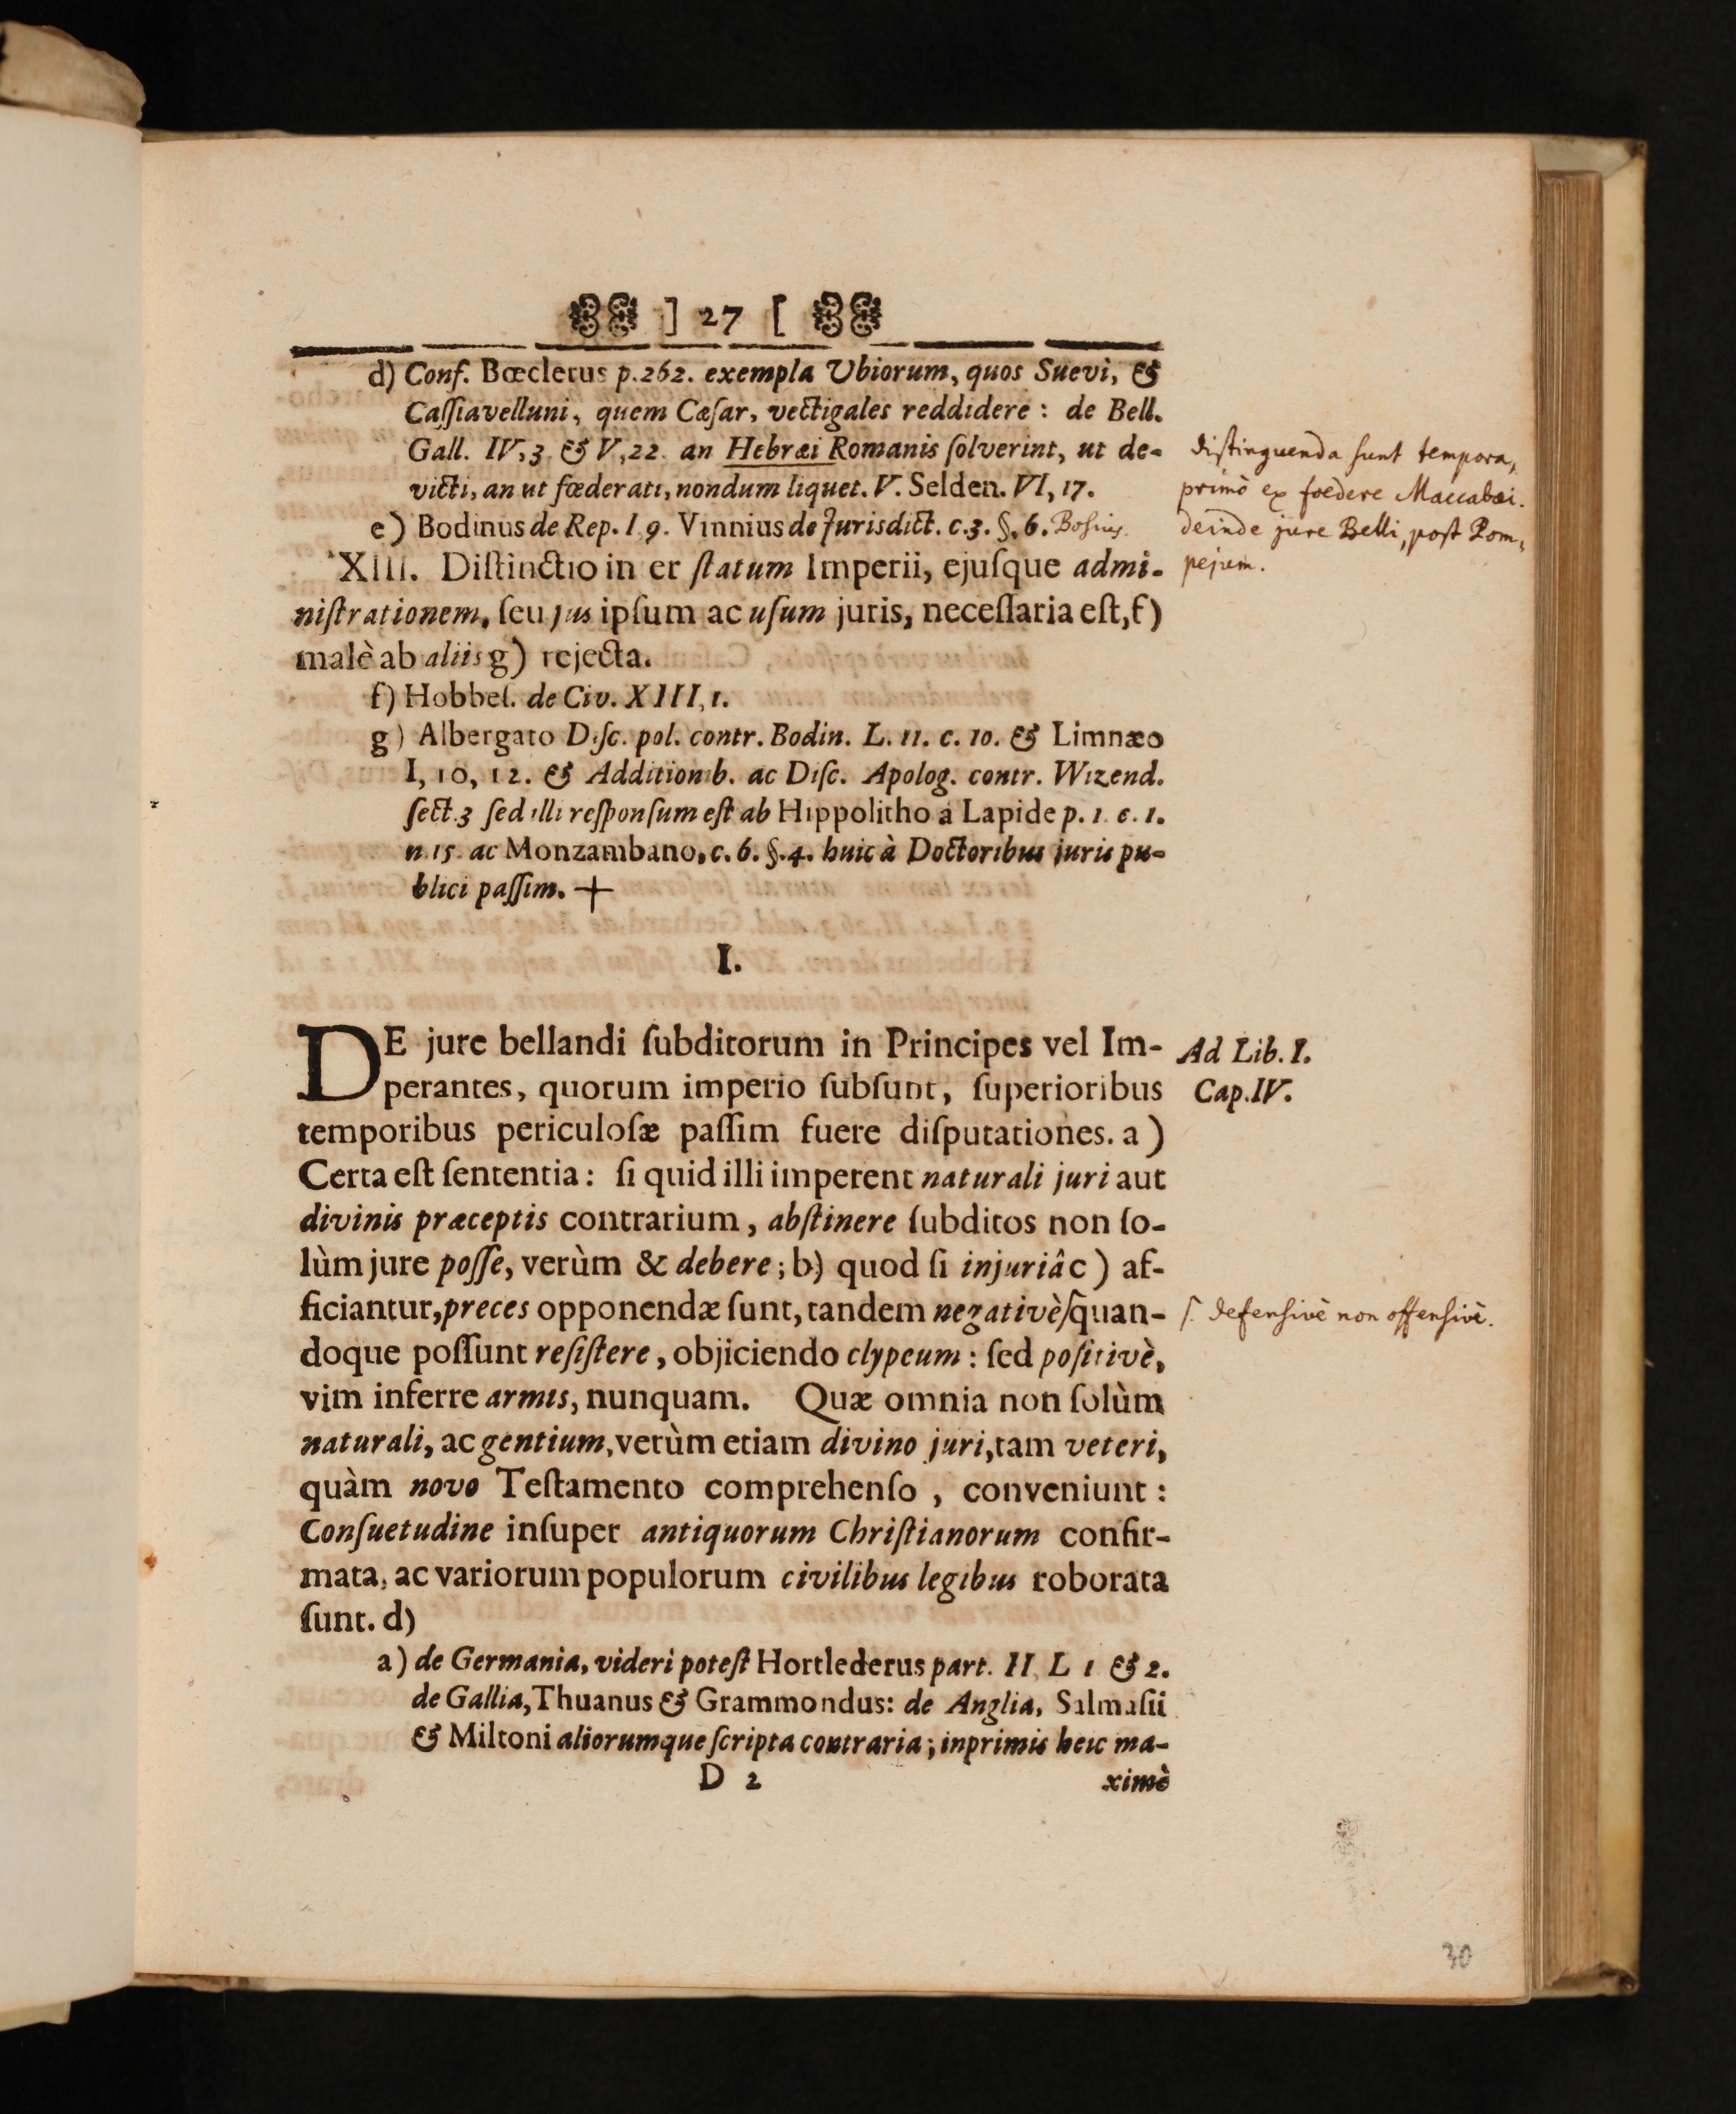 ] 27 [
d) Conf. Bœclerus p.262. exempla Ubiorum, quos Suevi, &
Caſſiavelluni, quem Cæſar, vectigales reddidere : de Bell.
Gall. IV, 3. & V, 22. an Hebræi Romanis ſolverint, ut de-
victi, an ut fœderati, nondum liquet. V. Selden. VI, 17.
distinguenda sunt tempora,
primò ex foedere Maccabæi.
deinde jure Belli, post Pom,
pejum.
e) Bodinus de Rep. I, 9. Vinnius de Jurisdict. c.3. §. 6. Bosius.
XIII. Diſtinctio in er ſtatum Imperii, ejuſque admi-
niſtrationem, ſeu jus ipſum ac uſum juris, neceſſaria eſt, f)
malè ab aliis g) rejecta.
f) Hobbeſ. de Civ. XIII, 1.
g) Albergato Diſc. pol. contr. Bodin. L. 11. c. 10. & Limnæo
I, 10, 12. & Additionib. ac Diſc. Apolog. contr. Wizend.
ſect. 3 ſed illi reſponſum eſt ab Hippolitho á Lapide p. 1. c. 1.
n. 15. ac Monzambano, c. 6. §. 4. huic à Doctoribus juris pu-
blici paſſim. +
I.
DE jure bellandi ſubditorum in Principes vel Im-
perantes, quorum imperio ſubſunt, ſuperioribus
temporibus periculoſæ paſſim fuere diſputationes. a)
Ad Lib. I.
Cap. IV.
Certa eſt ſententia : ſi quid illi imperent naturali juri aut
divinis præceptis contrarium, abſtinere ſubditos non ſo-
lùm jure poſſe, verùm & debere ; b) quod ſi injuriâ c) af-
ficiantur, preces opponendæ ſunt, tandem negativè ſ quan-
ſ. defensivè non offensivè.
doque poſſunt reſiſtere, objiciendo clypeum : ſed poſitivè,
vim inferre armis, nunquam. Quæ omnia non ſolùm
naturali, ac gentium, verùm etiam divino juri, tam veteri,
quàm novo Teſtamento comprehenſo , conveniunt :
Conſuetudine inſuper antiquorum Chriſtianorum confir-
mata, ac variorum populorum civilibus legibus roborata
ſunt. d)
a) de Germania, videri poteſt Hortlederus part. II. L 1 & 2.
de Gallia, Thuanus & Grammondus: de Anglia, Salmaſii
& Miltoni aliorumque ſcripta contraria ; inprimis heic ma-
D 2 ximè
30